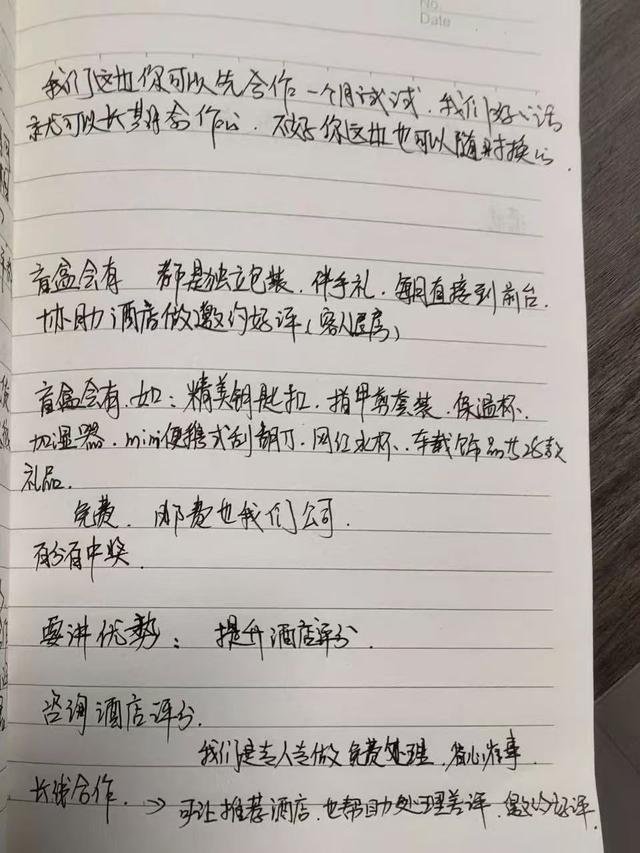 No.
Date
我们这边你可以先合作一个月试试.我们好的话
就可以长期合作的.不好你这边也可以随时换的.
盲盒会有 都是独立包装.伴手礼.每月直接到前台.
协助酒店做邀约好评(客人屋房)
盲盒会有.如:精美钥匙扣.指甲剪套装.保温杯、
加湿器.mini便携式刮胡刀.网红水杯、车载饰品共28款
礼品.
免费.邮费也我们公司.
百分百中奖.
要讲优势: 提升酒店评分.
咨询酒店评分.
我们是专人专做免费处理.省心省事
长线合作. → 可让推荐酒店.也帮助处理差评.邀约好评.